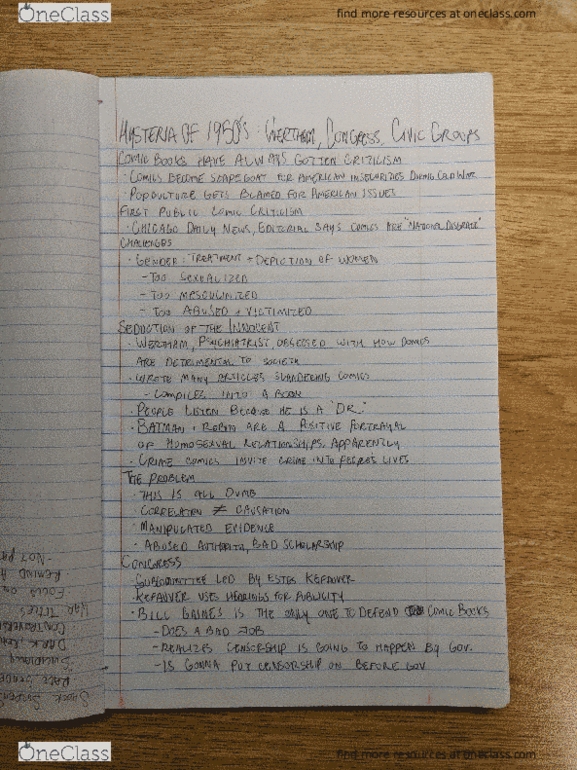 OneClass
find more resources at oneclass.com
HYSTERIA OF 1950's: WERTHAM, CONGRESS, CIVIC GROUPS
COMIC BOOKS HAVE ALWAYS GOTTEN CRITICISM
· COMICS BECOME SCAPEGOAT FOR AMERICAN INSECURITIES DURING COLD WAR
· POP CULTURE GETS BLAMED FOR AMERICAN ISSUES
FIRST PUBLIC COMIC CRITICISM
· CHICAGO DAILY NEWS, EDITORIAL SAYS COMICS ARE "NATIONAL DISGRACE"
CHALLENGES
· GENDER: TREATMENT + DEPICTION OF WOMEN
- TOO SEXUALIZED
- TOO MASCULINIZED
- TOO ABUSED + VICTIMIZED
SEDUCTION OF THE INNOCENT
· WERTHAM, PSYCHIATRIST, OBSESSED WITH HOW COMICS
ARE DETRIMENTAL TO SOCIETY
· WROTE MANY ARTICLES SLANDERING COMICS
- COMPILES INTO A BOOK
· PEOPLE LISTEN BECAUSE HE IS A "DR."
· BATMAN + ROBIN ARE A POSITIVE PORTRAYAL
OF HOMOSEXUAL RELATIONSHIPS, APPARENTLY
· CRIME COMICS INVITE CRIME INTO PEOPLES LIVES
THE PROBLEM
· THIS IS ALL DUMB
· CORRELATION ≠ CAUSATION
· MANIPULATED EVIDENCE
· ABUSED AUTHORITY, BAD SCHOLARSHIP
CONGRESS
· SUBCOMMITTEE LED BY ESTES KEFAUVER
· KEFAUVER USES HEARINGS FOR PUBLICITY
· BILL GAINES IS THE ONLY ONE TO DEFEND COMIC BOOKS
- DOES A BAD JOB
- REALIZES CENSORSHIP IS GOING TO HAPPEN BY GOV.
- IS GONNA PUT CENSORSHIP ON BEFORE GOV.
· NOT
REMIND
FOCUS ON
WAR TITLES
DARK,
SHOCK
OneClass
find more resources at oneclass.com